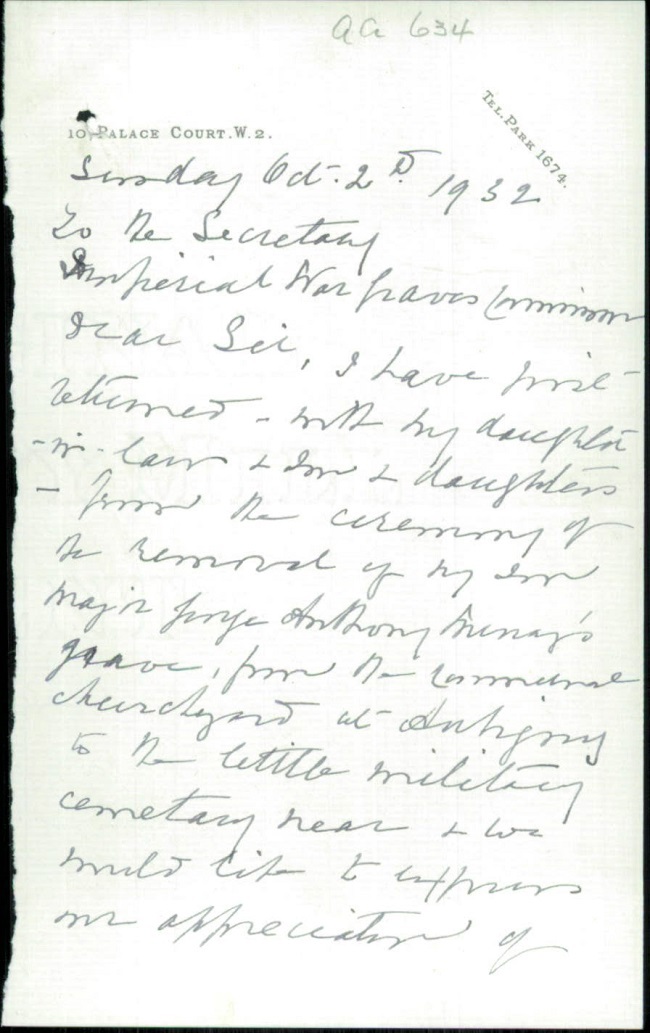 AA 634
10, PALACE COURT. W. 2.
TEL. PARK 1674.
Sunday Oct. 2nd 1932
To the Secretary
Imperial War Graves Commission
Dear Sir, I have just
returned - with my daughter
-in-law & son & daughters
- from the ceremony of
the removal of my son
Major George Anthony Murray's
grave, from the communal
churchyard at Aubigny
to the little military
cemetary near & we
would like to express
our appreciation of